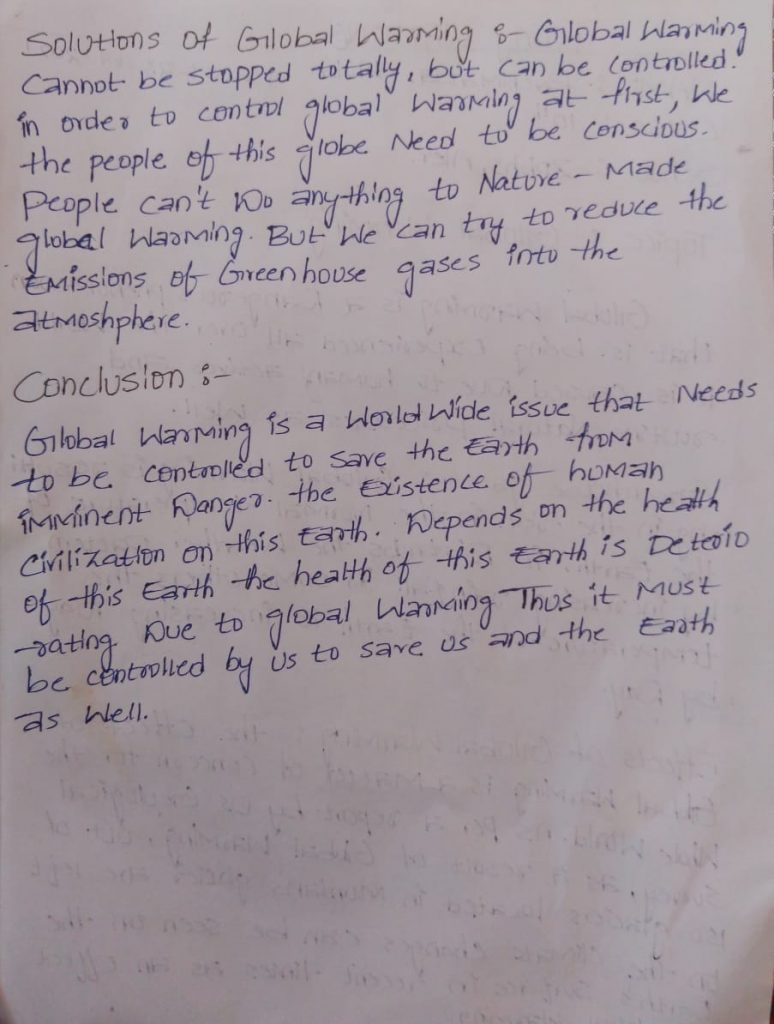 Solutions of Global Warming :- Global Warming
Cannot be stopped totally, but can be controlled.
in order to control global Warming at first, We
the people of this globe Need to be conscious.
People can't Do anything to Nature - Made
global Warming. But We can try to reduce the
Emissions of Greenhouse gases into the
atmoshphere.
Conclusion :-
Global Warming is a World Wide issue that Needs
to be controlled to save the Earth from
imminent Danger. the Existence of human
Civilization on this Earth. Depends on the health
of this Earth the health of this Earth is Deterio
-rating Due to global Warming Thus it Must
be controlled by us to save us and the Earth
as Well.